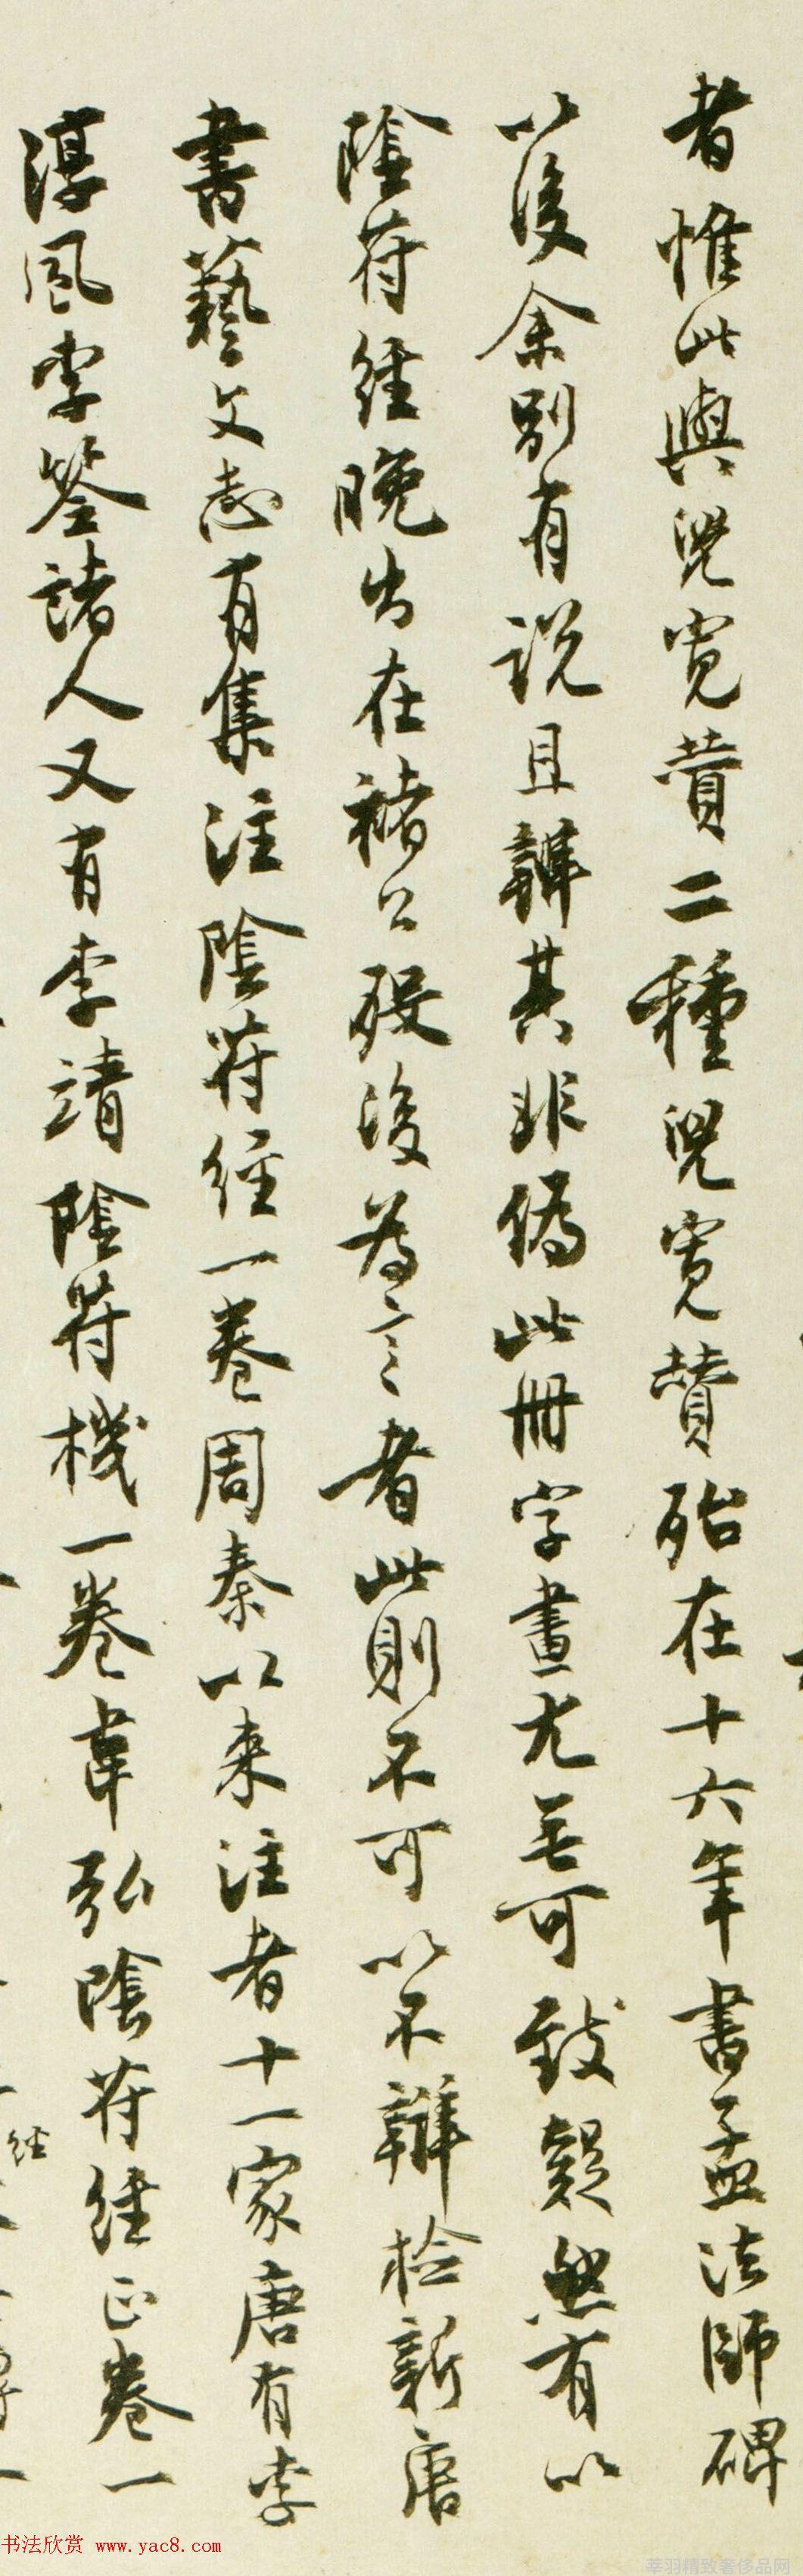 者惟此與兒寬贊二種兒寬贊殆在十六年書孟法師碑
以後余別有說且辯其非僞此冊字畫尤無可致疑然有以
陰符經晚出在褚公歿後為言者此則不可以不辯檢新唐
書藝文志有集注陰符經一卷周秦以來注者十一家唐有李
淳風李筌諸人又有李靖陰符機一卷韋弘陰符經正卷一
經
书法欣赏 www.yac8.com
莘羽精致奢侈品网